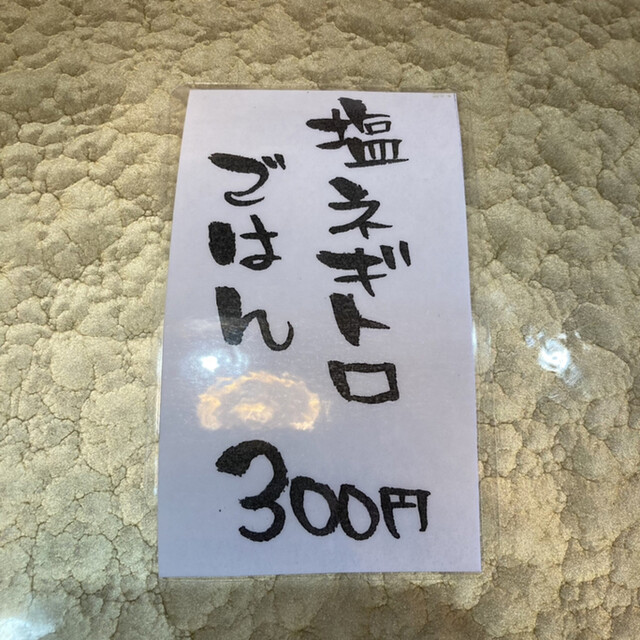 塩ネギトロ
ごはん
300円